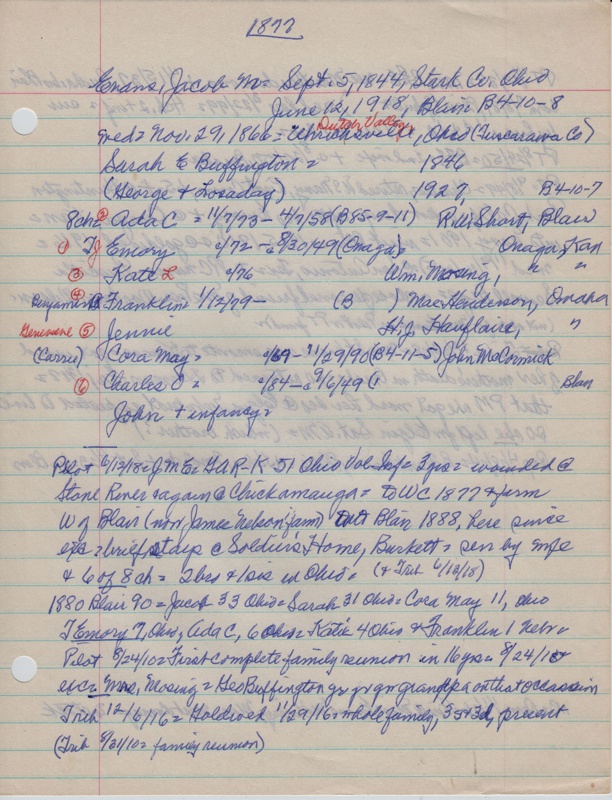 1877
Evans, Jacob M = Sept. 5, 1844, Stark Co. Ohio
June 12, 1918, Blair B4-10-8
Dutch Valley
med = Nov. 29, 1866 = Uhrichsville, Ohio (Tuscarawa Co)
Sarah E Buffington = 1846
(George + Losaday) 1927, B4-10-7
8ch = ② Ada C = 11/7/73 - 4/7/58 (B85-9-11) R.W. Short, Blair
① Tj Emory 0/72 - 8/30/49 (Onaga) = Onaga, Kan
③ Kate L 0/76 Wm. Mosing, " "
Benjamin ④ Franklin 1/12/79 - (B ) Mae Henderson, Omaha
Genevieve ⑤ Jennie H.J. Hauflaire, "
(Carrie) Cora May = 0/69 - 11/29/90 (B4-11-5) John McCormick
⑥ Charles O = 0/84 - 9/6/49 ( Blair
John + infancy =
Pilot 6/12/18 = J M E = GAR-K-51 Ohio Vol Inf = 3 yrs = wounded @
Stone River + again @ Chickamauga = to WC 1877 + farm
W of Blair (now James Nelson farm) Blair 1888, here since
exc = brief stays @ Soldier's Home, Burkett = surv by wife
+ 6 of 8 ch = 2 bros + 1 sis in Ohio = (+ Trib 6/19/18)
1880 Blair 90 = Jacob 33 Ohio = Sarah 31 Ohio = Cora May 11, Ohio
T Emory 7, Ohio, Ada C, 6 Ohio = Katie 4 Ohio + Franklin 1 Nebr =
Pilot 8/24/10 = First complete family reunion in 16 yrs = 8/24/10
exc = Mrs. Mosing = Geo Buffington gr gr grandpa on that occassion
Trib 12/6/16 = Gold wed 11/29/16 = whole family, 3s + 3d, present
(Trib 8/31/10 = family reunion)